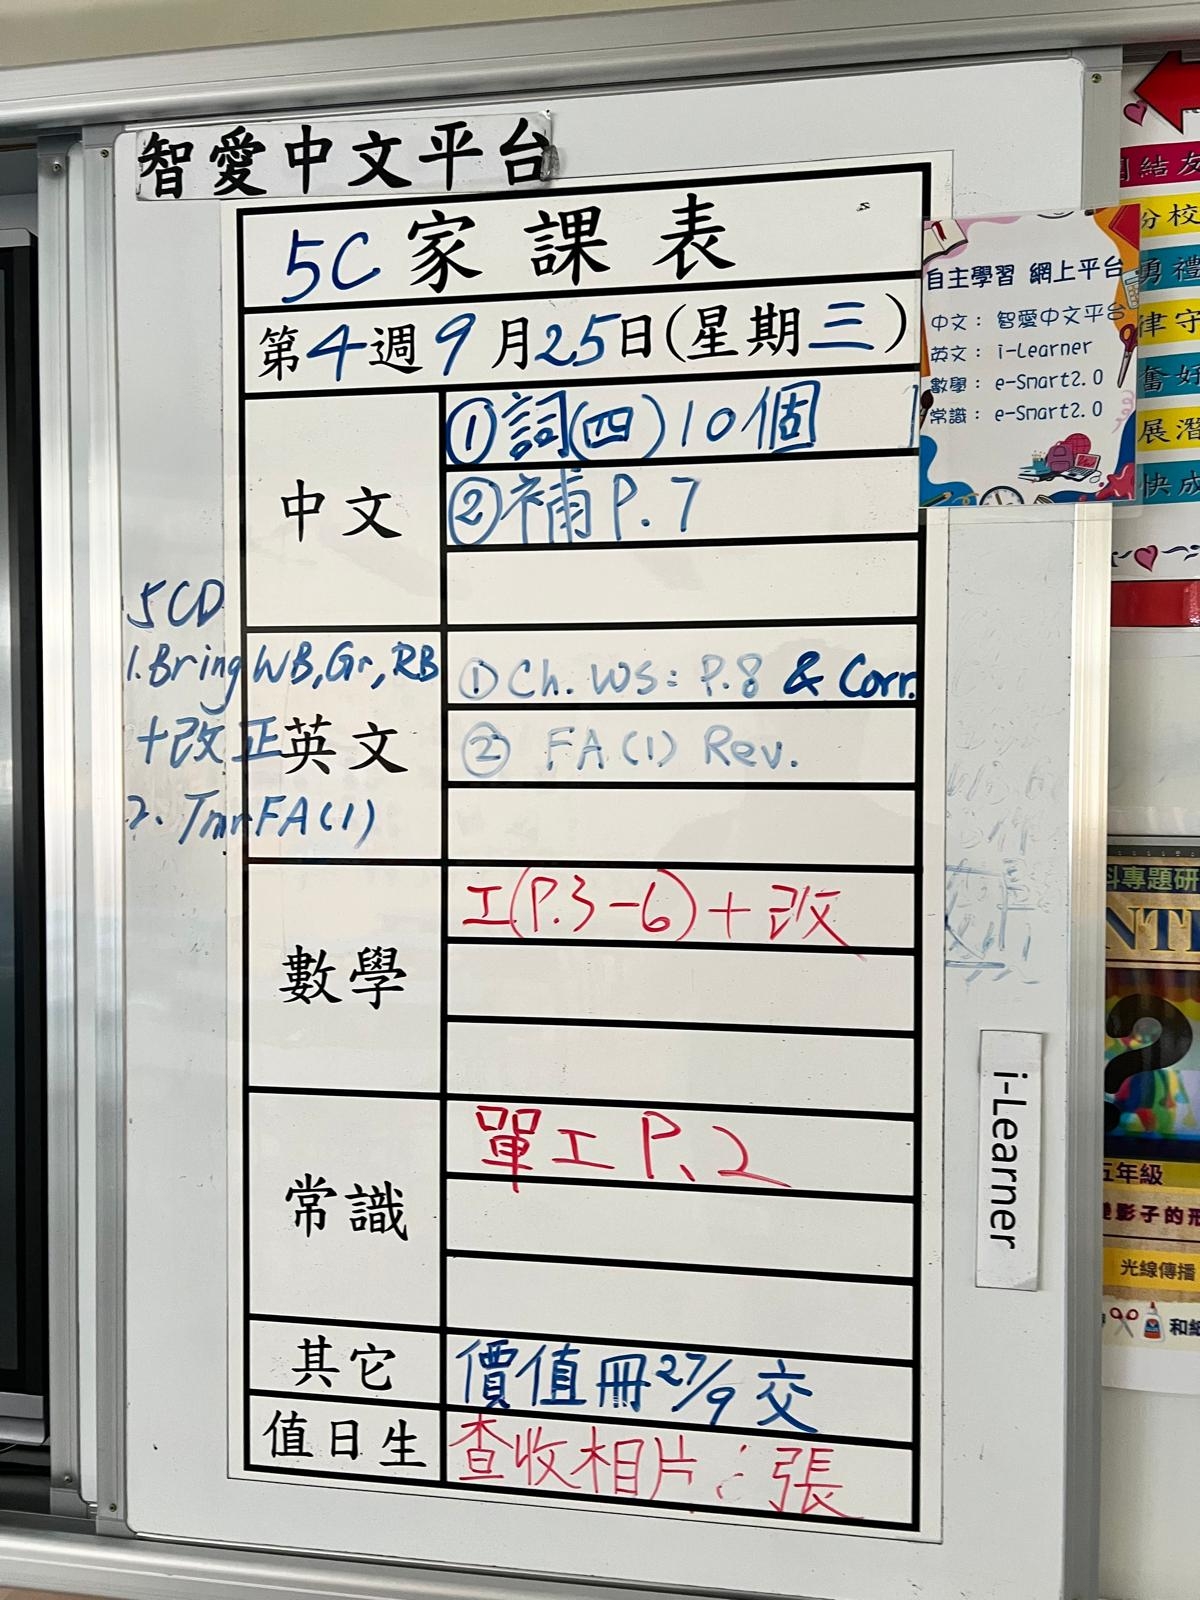 智愛中文平台
5C家課表
第4週9月25日(星期三)
中文
①詞(四)10個
②補P.7
5CD
1.Bring WB,Gr,RB
+改正
2. Tmr FA(1)
英文
①Ch. WS: P.8 & Corr.
② FA(1) Rev.
數學
工(P.3-6)+改
常識
單工P.2
其它
價值冊27/9交
值日生
查收相片:張
自主學習 網上平台
中文: 智愛中文平台
英文: i-Learner
數學: e-Smart2.0
常識: e-Smart2.0
i-Learner
結友
分校
勇禮
律守
奮好
展潛
快成
科專題研
NT
?
五年級
影子的形
光線傳播
和紙